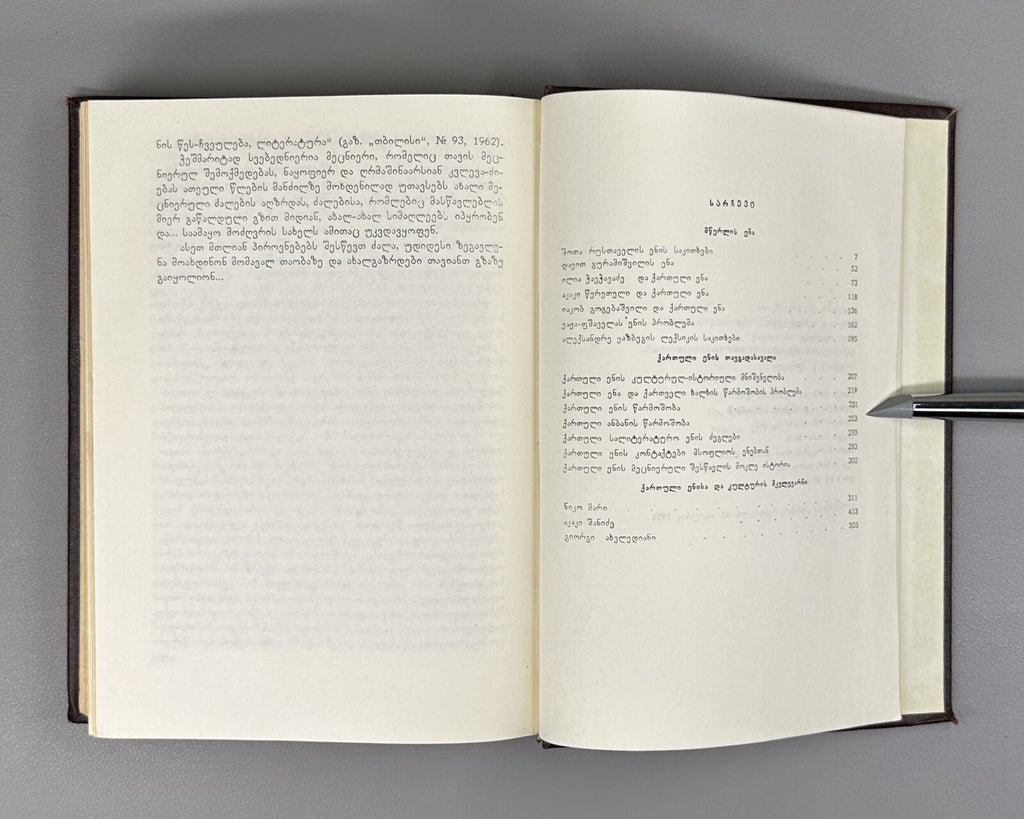 ნის წეს-ჩვეულება, ლიტერატურა“ (გაზ. „თბილისი“, № 93, 1962).
ჭეშმარიტად სვებედნიერია მეცნიერი, რომელიც თავის მეც-
ნიერულ შემოქმედებას, ნაყოფიერ და ღრმაშინაარსიან კვლევა-ძი-
ებას ათეული წლების მანძილზე მოხდენილად უთავსებს ახალი მე-
ცნიერული ძალების აღზრდას, ძალებისა, რომლებიც მასწავლებლის
მიერ გაწალდული გზით მიდიან, ახალ-ახალ სიმაღლეებს იპყრობენ
და... საამაყო მოძღვრის სახელს ამითაც უკვდავყოფენ.
ასეთ მთლიან პიროვნებებს შესწევთ ძალა, უდიდესი ზეგავლე-
ნა მოახდინონ მომავალ თაობაზე და ახალგაზრდები თავიანთ გზაზე
გაიყოლიონ...
სარჩევი
მწერლის ენა
შოთა რუსთაველის ენის საკითხები . . . . 7
დავით გურამიშვილის ენა . . . . 52
ილია ჭავჭავაძე და ქართული ენა . . . . 73
აკაკი წერეთელი და ქართული ენა . . . . 118
იაკობ გოგებაშვილი და ქართული ენა . . . . 136
ვაჟა-ფშაველას ენის პრობლემა . . . . 162
ალექსანდრე ყაზბეგის ლექსიკის საკითხები . . . . 195
ქართული ენის თავგადასავალი
ქართული ენის კულტურულ-ისტორიული მნიშვნელობა . . . . 207
ქართული ენა და ქართველი ხალხის წარმოშობის პრობლემა 219
ქართული ენის წარმოშობა . . . . 231
ქართული ანბანის წარმოშობა . . . . 253
ქართული სალიტერატურო ენის ძეგლები . . . . 270
ქართული ენის კონტაქტები მსოფლიოს ენებთან . . . . 283
ქართული ენის მეცნიერული შესწავლის მოკლე ისტორია 302
ქართული ენისა და კულტურის მკვლევარნი
ნიკო მარი . . . . 311
აკაკი შანიძე . . . . 413
გიორგი ახვლედიანი . . . . 505